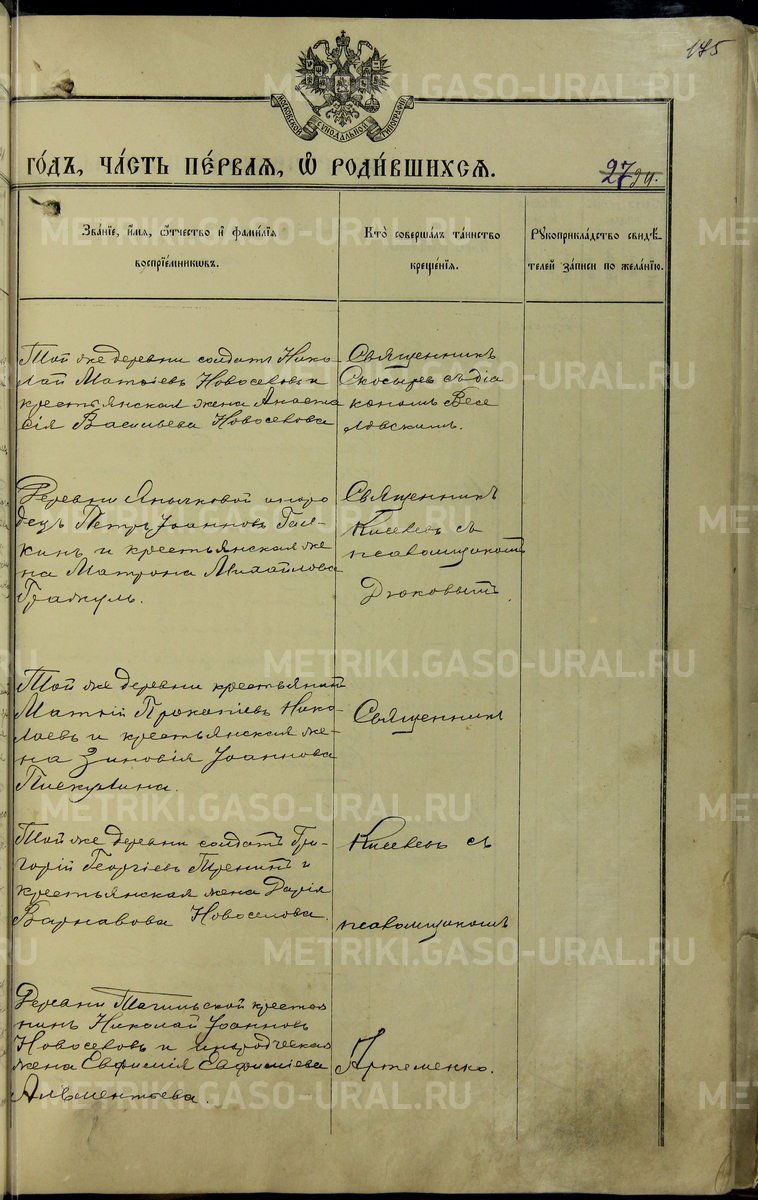 175
МОСКОВСКОЙ СѴНОДАЛЬНОЙ ТИПОГРАФІИ
ГОДЪ, ЧАСТЬ ПЕРВАЯ, Ѡ РОДИВШИХСЯ.
27
Званіе, имя, ѻтчество и фамилія
воспріемниковъ.
Кто совершалъ таинство
крещенія.
Рукоприкладство свидѣ-
телей записи по желанію.
Той же деревни солдатъ Нико
лай Матѳіевъ Новоселовъ и
крестьянская жена Анаста
сія Васильева Новоселова
Священникъ
Скосыревъ съ діа
кономъ Весе
ловскимъ.
Деревни иноро
децъ Петръ Іоанновъ Гал-
кинъ и крестьянская же
на Матрона Михайлова
Священникъ
Киселевъ съ
псаломщикомъ
Дюковымъ
Той же деревни крестьянинъ
Матѳій Прокопіевъ Нико
лаевъ и крестьянская же-
на Зиновія Іоаннова
Священникъ
Той же деревни солдатъ Гри-
горій Георгіевъ и
крестьянская жена Дарія
Варнавова Новоселова.
Киселевъ съ
псаломщикомъ
Деревни Тагильской крестья
нинъ Николай Іоанновъ
Новоселовъ и инородческая
жена Евфимія Евфиміева
Альментьева.
Артеменко.
METRIKI.GASO-URAL.RU